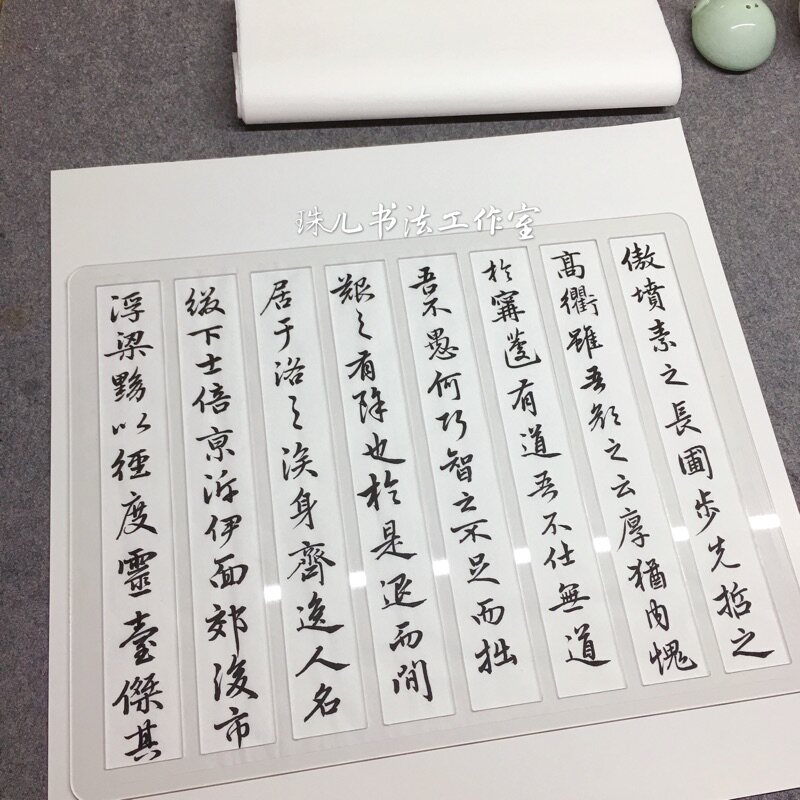 珠儿书法工作室
傲墳素之長圃步先哲之
高衢雖吾顔之云厚猶内愧
於甯蘧有道吾不仕無道
吾不愚何巧智之不足而拙
艱之有餘也於是退而閒
居于洛之涘身齊逸人名
綴下士倍京泝伊面郊後市
浮梁黝以徑度靈臺傑其